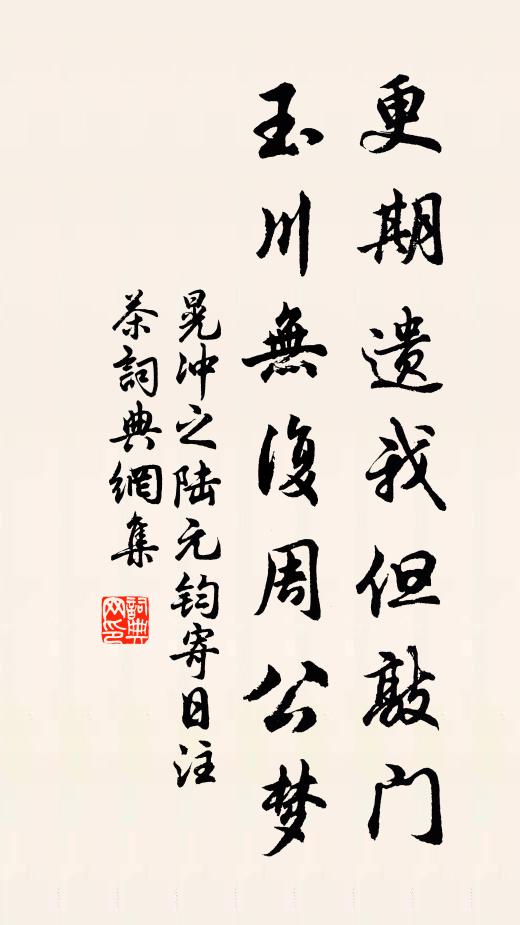 更期遗我但敲门
玉川無復周公梦
晁冲之陆元钧寄日注
茶詞典網集
詞典网印